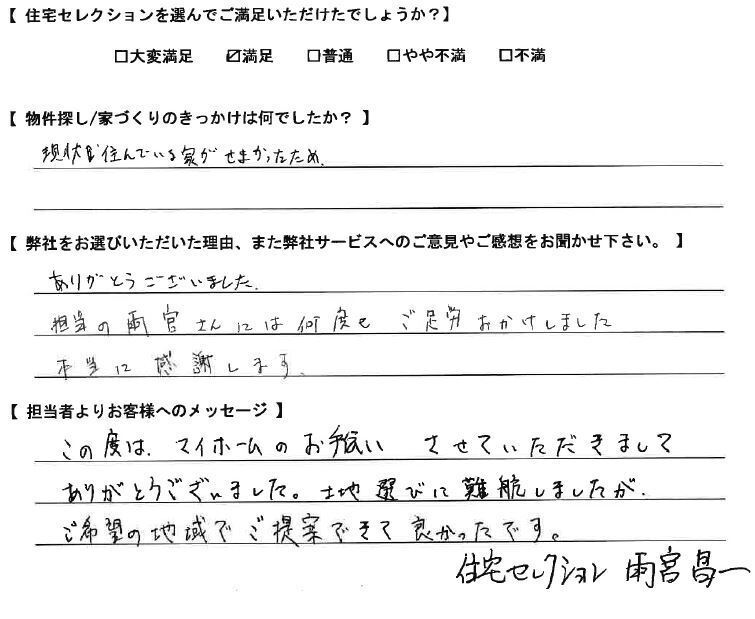 【 住宅セレクションを選んでご満足いただけたでしょうか？】
□大変満足 ☑満足 □普通 □やや不満 □不満
【 物件探し/家づくりのきっかけは何でしたか？ 】
現状住んでいる家がせまかったため.
【 弊社をお選びいただいた理由、また弊社サービスへのご意見やご感想をお聞かせ下さい。 】
ありがとうございました.
担当の雨宮さんには何度も ご足労おかけしました
本当に感謝します.
【 担当者よりお客様へのメッセージ 】
この度は、マイホームのお手伝い させていただきまして
ありがとうございました。土地選びに難航しましたが、
ご希望の地域でご提案できて良かったです。
住宅セレクション 雨宮昌一